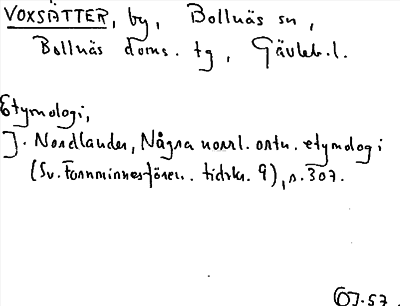 VOXSÄTTER, by, Bollnäs sn,
Bollnäs doms. tg, Gävleb. l.
Etymologi,
J. Nordlander, Några norrl. ortn. etymologi
(Sv. Fornminnesfören. tidskr. 9), s. 307.
OJ. 57